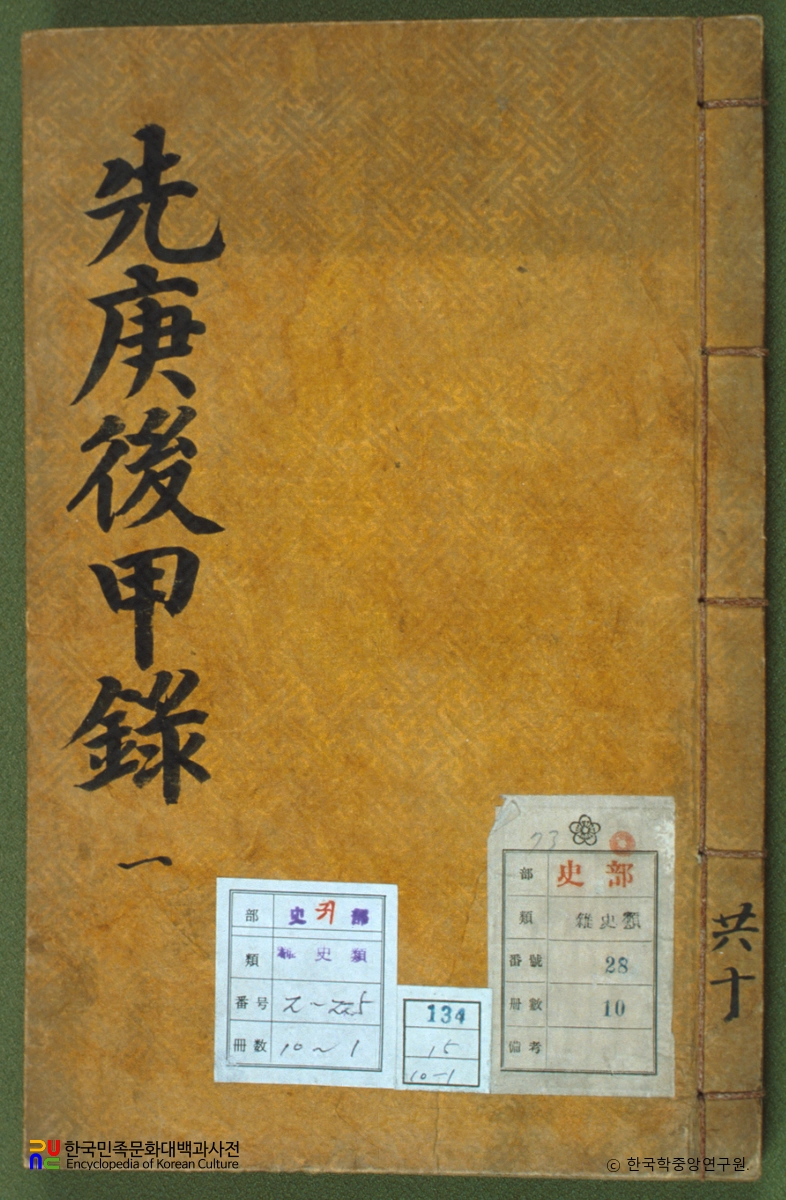 先庚後甲錄
一
共十
部 史 部
類 雜史類
番號 28
冊數 10
備考
部 史 部
類 雜史類
番号
冊數 10~1
134
15
10-1
한국민족문화대백과사전
Encyclopedia of Korean Culture
© 한국학중앙연구원.